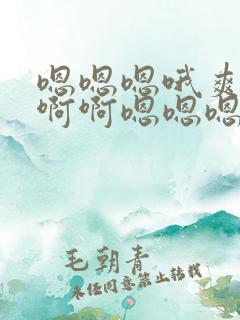 嗯嗯嗯哦爽
啊啊嗯嗯嗯
毛朝青
未经同意禁止转载